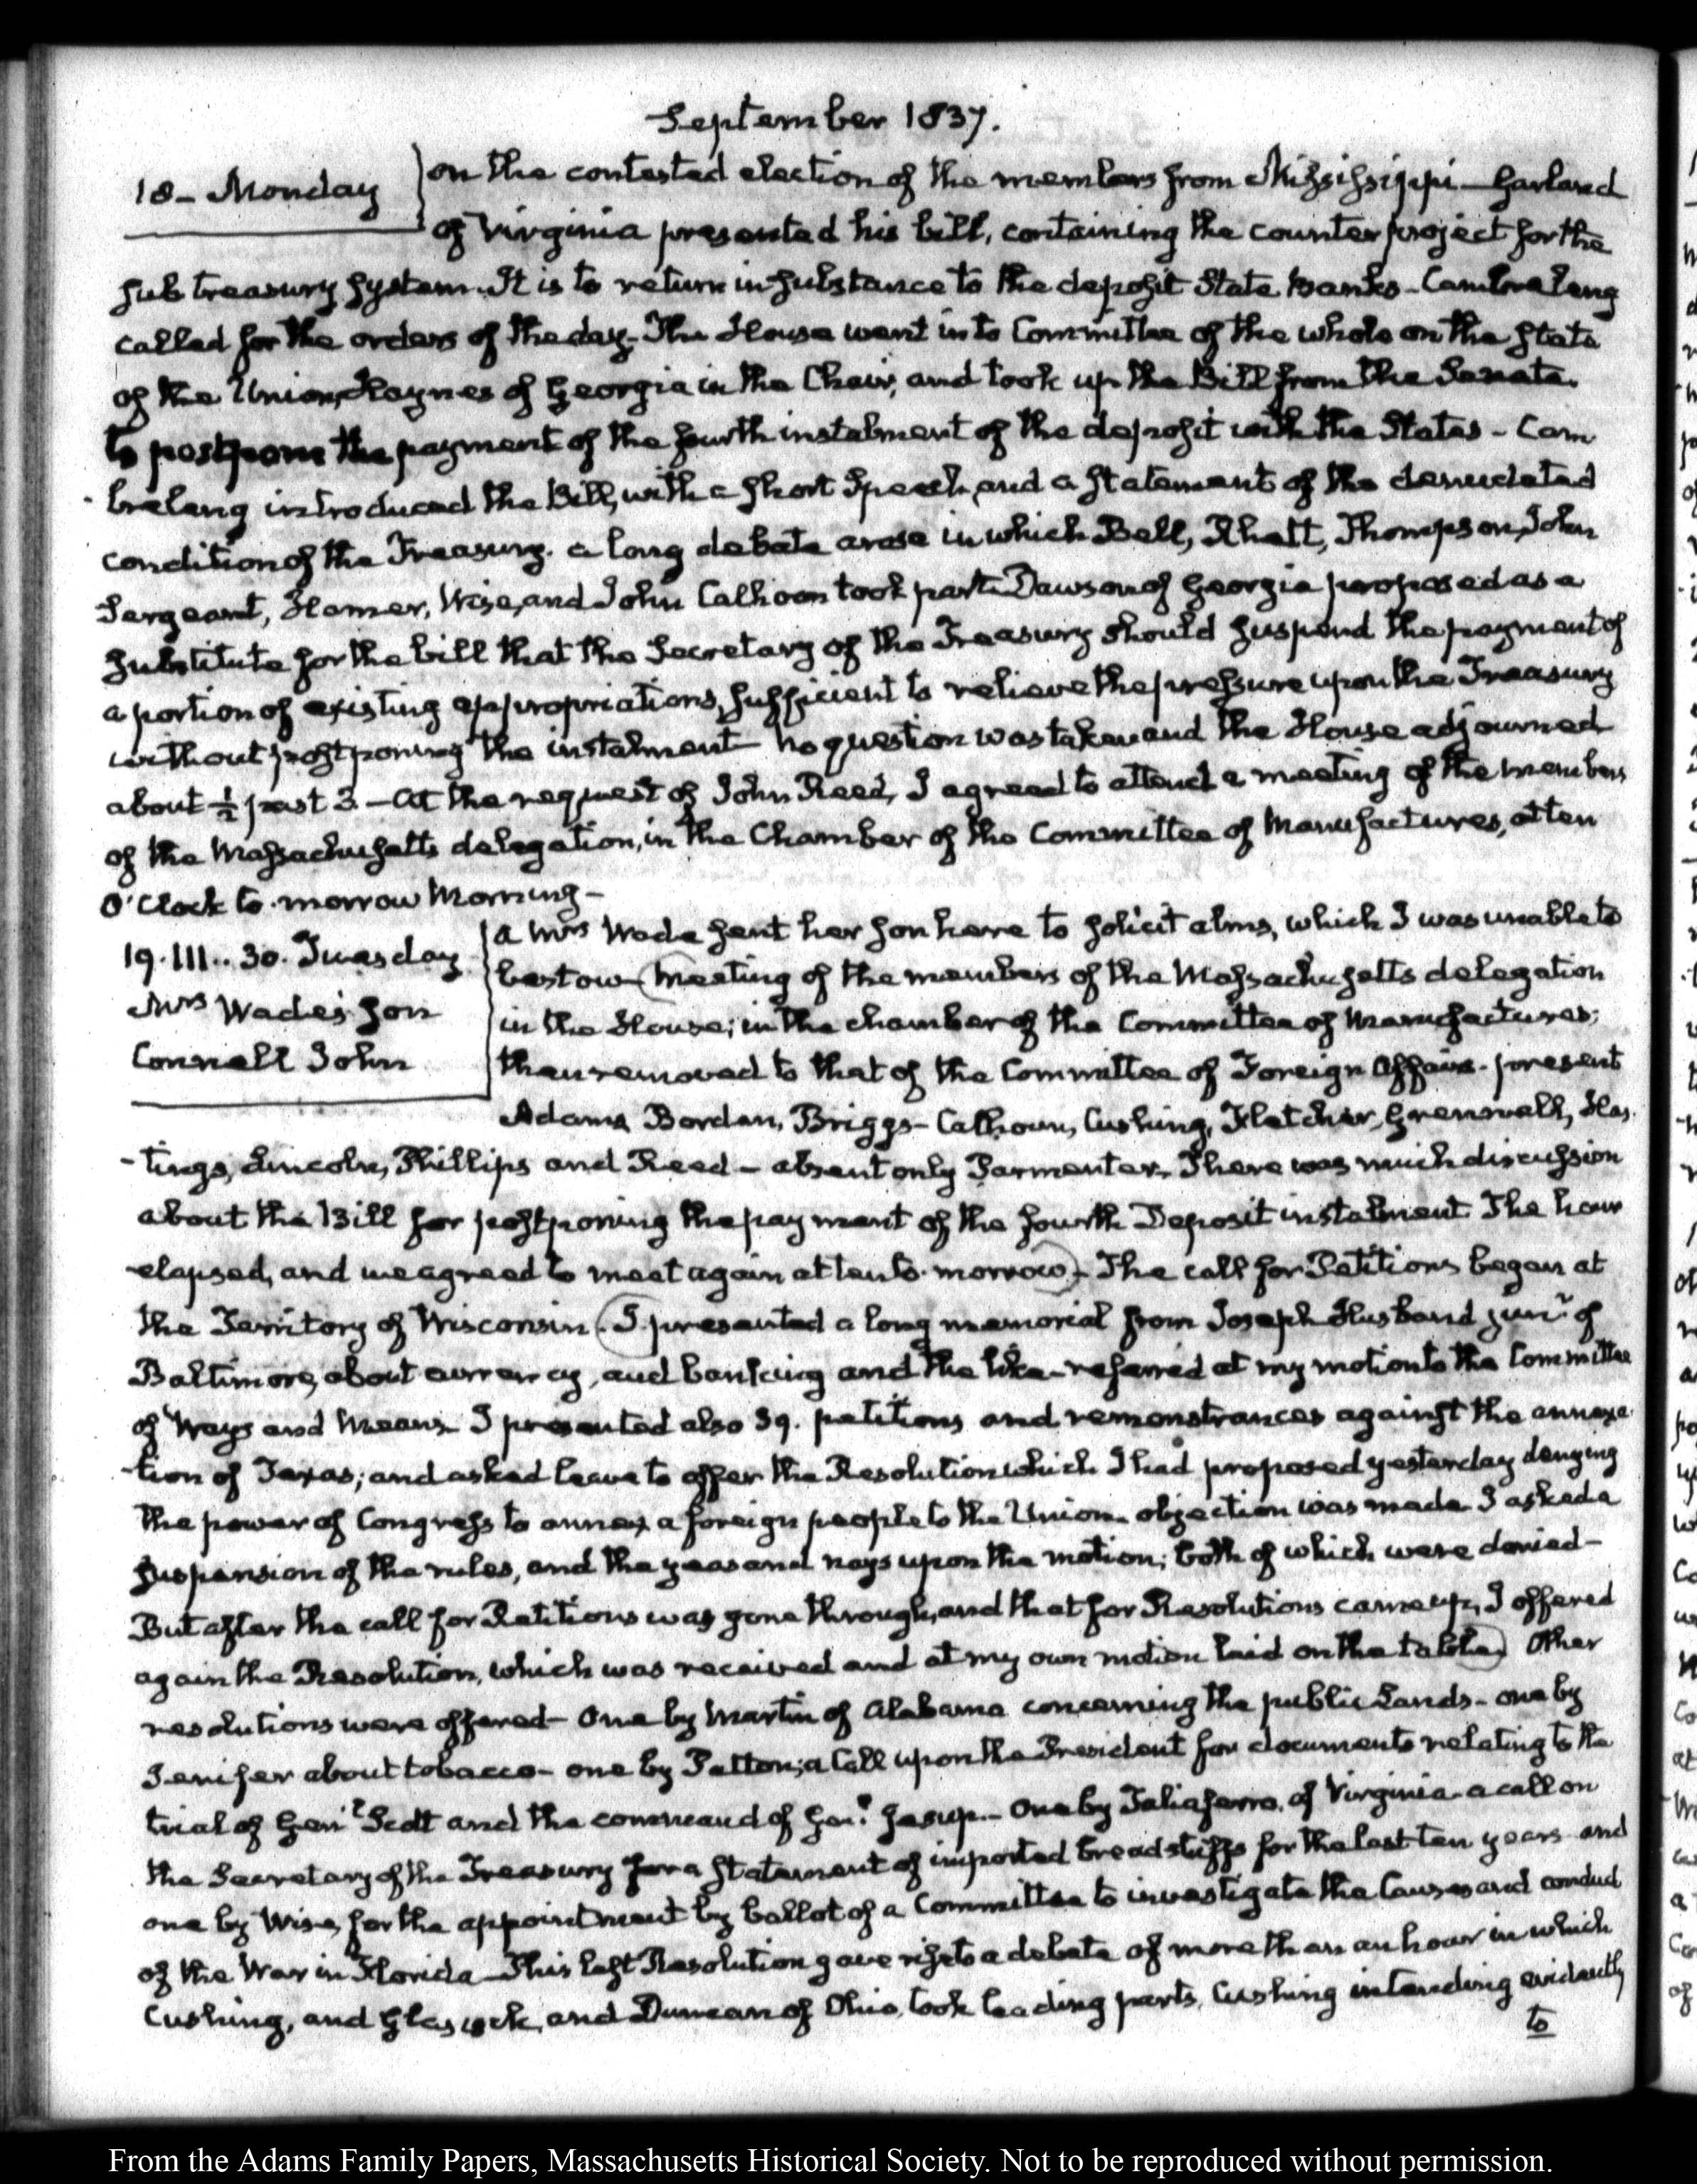 September 1837.
18 - Monday
on the contested election of the members from Mississippi - Garland
of Virginia presented his bill, containing the counter project for the
sub treasury system. It is to return in substance to the deposit State Banks - Cambreleng
called for the orders of the day - The House went into Committee of the whole on the State
of the Union, Haynes of Georgia in the Chair, and took up the Bill from the Senate.
to postpone the payment of the fourth instalment of the deposit with the States - Cam
breleng introduced the Bill, with a short Speech, and a statement of the denudated
condition of the Treasury. a long debate arose in which Bell, Rhett, Thompson, John
Sergeant, Hamer, Wise, and John Calhoon took part. Dawson of Georgia proposed as a
substitute for the bill that the Secretary of the Treasury should suspend the payment of
a portion of existing appropriations, sufficient to relieve the pressure upon the Treasury
without postponing the instalment - no question was taken and the House adjourned
about ½ past 3 - At the request of John Reed, I agreed to attend a meeting of the members
of the Massachusetts delegation, in the Chamber of the Committee of Manufactures, at ten
O'Clock to-morrow Morning -
19. III.. 30. Tuesday
Mrs Wade's son
Connell John
A Mrs Wade sent her son here to solicit alms, which I was unable to
bestow - (Meeting of the members of the Massachusetts delegation
in the House; in the chamber of the Committee of Manufactures;
then removed to that of the Committee of Foreign Affairs - present
Adams, Borden, Briggs - Calhoun, Cushing, Fletcher, Grennell, Has-
-tings, Lincoln, Phillips and Reed - absent only Parmenter. There was much discussion
about the Bill for postponing the payment of the fourth Deposit instalment The hour
elapsed, and we agreed to meet again at ten to-morrow) - The call for Petitions began at
the Territory of Wisconsin. (I presented a long memorial from Joseph Husband junr. of
Baltimore, about currency, and banking and the like - referred at my motion to the Committee
of Ways and Means - I presented also 39. petitions and remonstrances against the annexa-
-tion of Texas; and asked leave to offer the Resolution which I had proposed yesterday denying
the power of Congress to annex a foreign people to the Union - objection was made I asked a
suspension of the rules, and the yeas and nays upon the motion; both of which were denied -
But after the call for Petitions was gone through, and that for Resolutions came up, I offered
again the Resolution, which was received and at my own motion laid on the table) Other
resolutions were offered - One by Martin of Alabama concerning the public Lands - one by
Jenifer about tobacco - one by Patton; a Call upon the President for documents relating to the
trial of Genl. Scott and the command of Genl. Jesup. - One by Taliaferro, of Virginia - a call on
the Secretary of the Treasury for a statement of imported breadstuffs for the last ten years - and
one by Wise, for the appointment by ballot of a Committee to investigate the Causes and conduct
of the War in Florida - This last Resolution gave rise to a debate of more than an hour in which
Cushing, and Glascock, and Duncan of Ohio, took leading parts, Cushing intending evidently
to
From the Adams Family Papers, Massachusetts Historical Society. Not to be reproduced without permission.